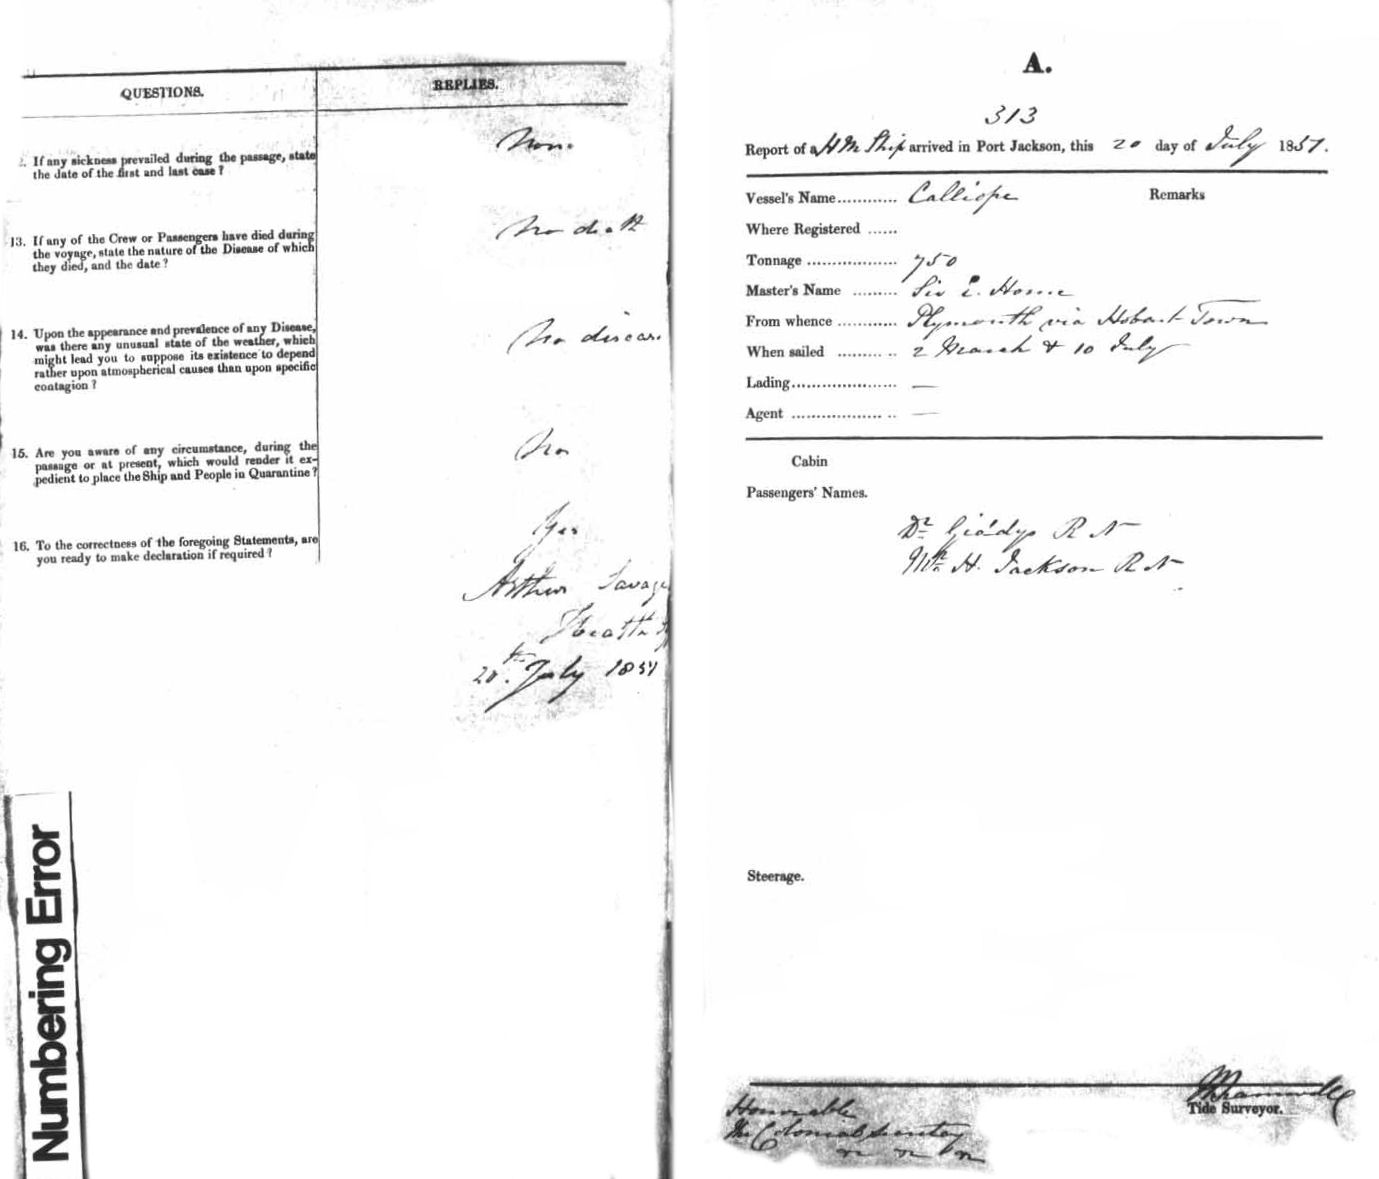 QUESTIONS.
REPLIES.
2. If any sickness prevailed during the passage, state
the date of the first and last case ?
Non.
13. If any of the Crew or Passengers have died during
the voyage, state the nature of the Disease of which
they died, and the date ?
No death
14. Upon the appearance and prevalence of any Disease,
was there any unusual state of the weather, which
might lead you to suppose its existence to depend
rather upon atmospherical causes than upon specific
contagion ?
No diseas
15. Are you aware of any circumstance, during the
passage or at present, which would render it ex-
pedient to place the Ship and People in Quarantine ?
No
16. To the correctness of the foregoing Statements, are
you ready to make declaration if required ?
Yes
Arthur Savage
Health
20th July 1851
Numbering Error
A.
313
Report of a HM Ship arrived in Port Jackson, this 20 day of July 1851.
Vessel's Name............ Calliope
Remarks
Where Registered ......
Tonnage .................. 750
Master's Name ......... Sir E. Home
From whence ............ Plymouth via Hobart Town
When sailed ......... .. 2 March & 10 July
Lading..................... —
Agent .................. .. —
Cabin
Passengers' Names.
Dr R N
Mr H. Jackson R N
Steerage.
Tide Surveyor.
Honorable
The Colonial Secretary